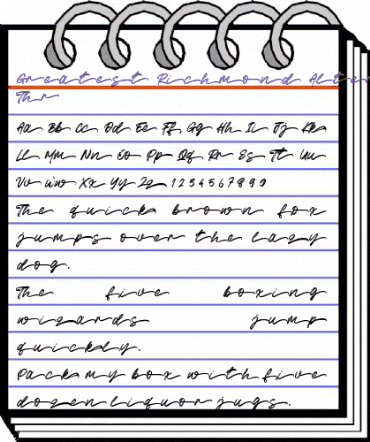 Greatest Richmond Alte
Thr
Aa Bb Cc Dd Ee Ff Gg Hh Ii Jj Kk
Ll Mm Nn Oo Pp Qq Rr Ss Tt Uu
Vv Ww Xx Yy Zz 1234567890
The quick brown fox
jumps over the lazy
dog.
The five boxing
wizards jump
quickly.
Pack my box with five
dozen liquor jugs.